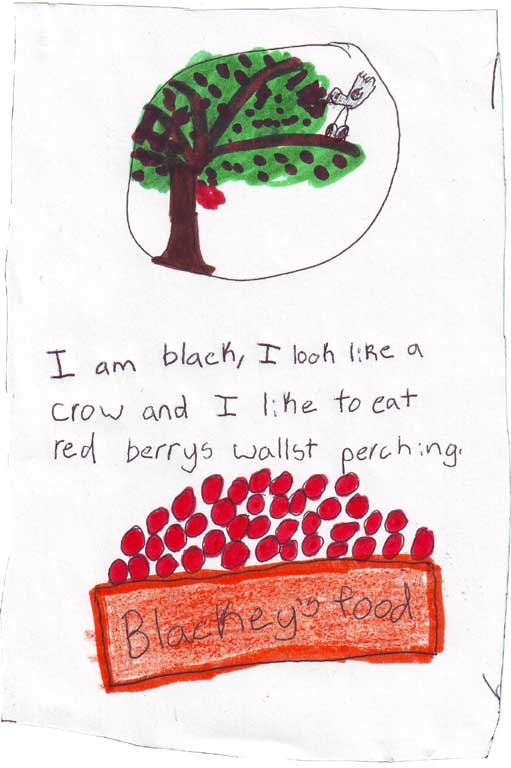 I am black, I look like a
crow and I like to eat
red berrys wallst perching.
Blackey's food